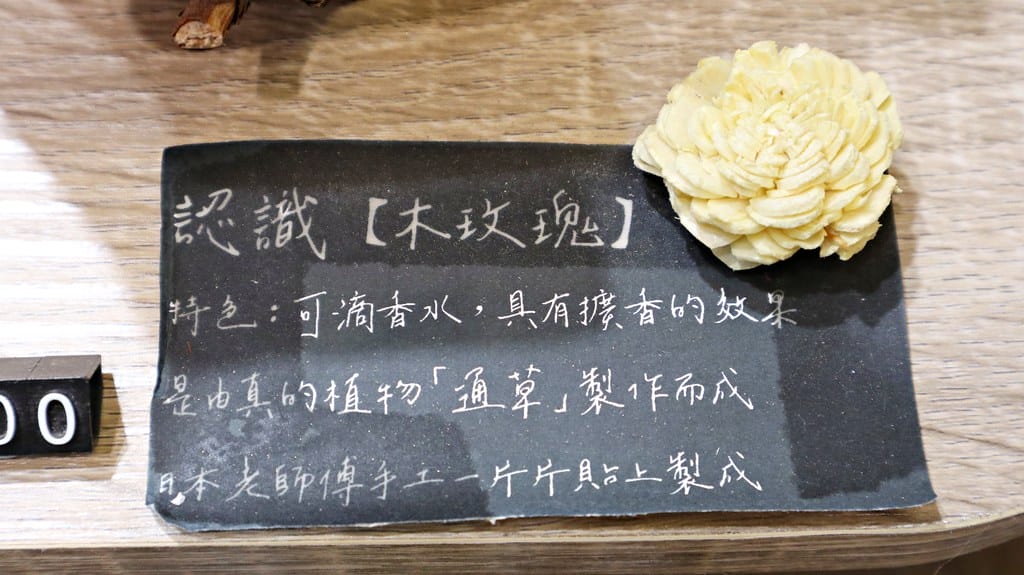 認識【木玫瑰】
特色：可滴香水，具有擴香的效果
是由真的植物「通草」製作而成
日本老師傅手工一片片貼上製成
00